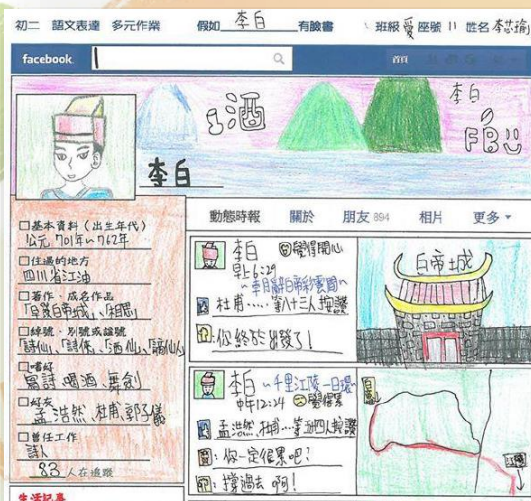 初二 語文表達 多元作業 假如 李白 有臉書 班級 愛 座號 11 姓名 李芯瑜
facebook
首頁
酒
李白
FB
李白
動態時報 關於 朋友 894 相片 更多
□基本資料（出生年代）
公元 701年~762年
□住過的地方
四川省江油
□著作、成名作品
「早發白帝城」、「相思」
□綽號、別號或諡號
「詩仙」、「詩俠」、「酒仙」、「謫仙人」
□嗜好
寫詩、喝酒、舞劍
□好友
孟浩然、杜甫、郭子儀
□曾任工作
詩人
83 人在追蹤
生活記事
李白 覺得開心
早上6:29
~朝辭白帝彩雲間~
杜甫……等八十三人按讚
:你終於出發了!
白帝城
李白 ~千里江陵一日還~
中午12:24 覺得累
孟浩然、杜甫…等 人按讚
:你一定很累吧?
:撐過去 啊!
白帝城
江陵